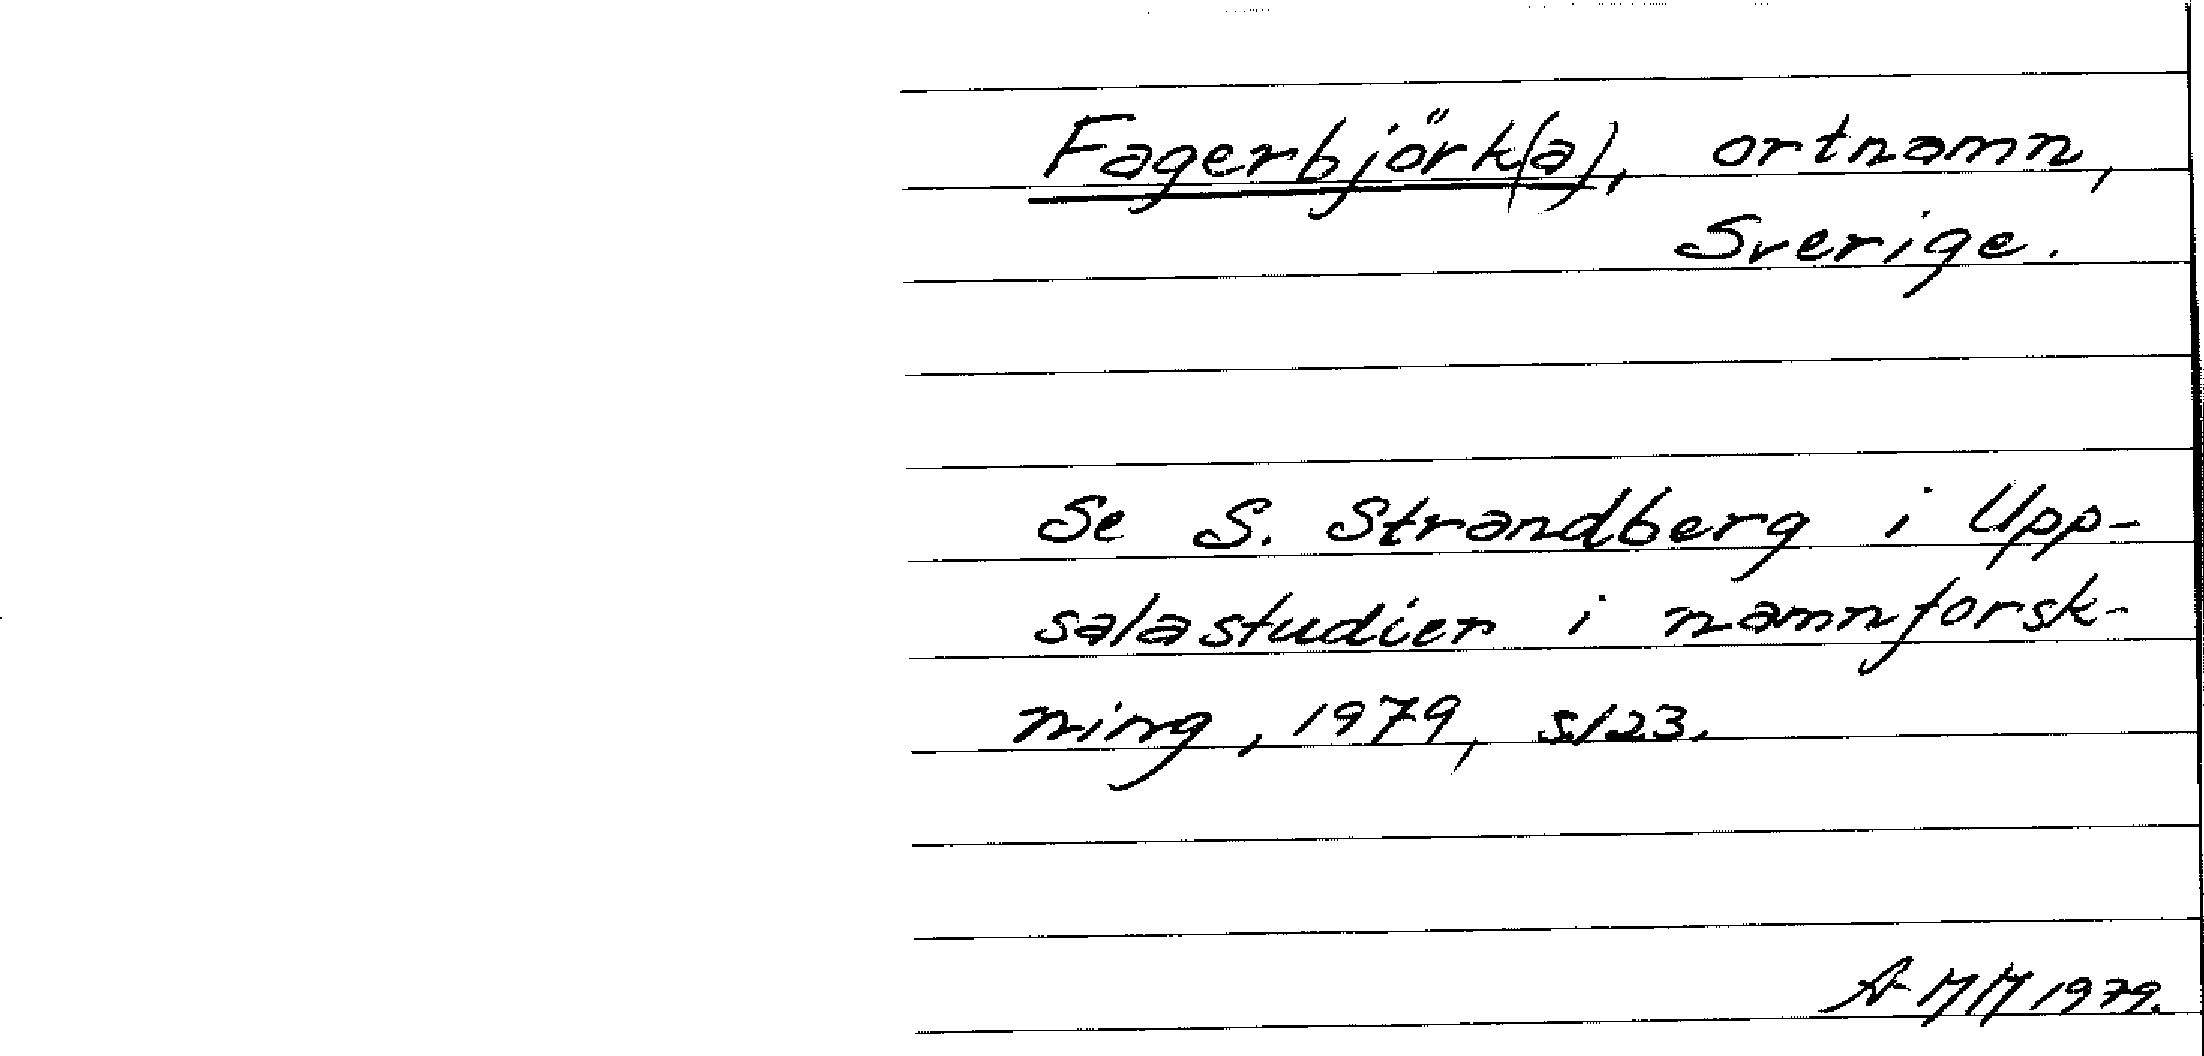 Fagerbjörk(a), ortnamn,
Sverige.
Se S. Strandberg i Upp-
salastudier i namnforsk-
ning, 1979, s123.
AMM 1979.